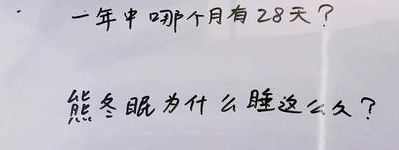 一年中哪个月有28天?
熊冬眠为什么睡这么久?